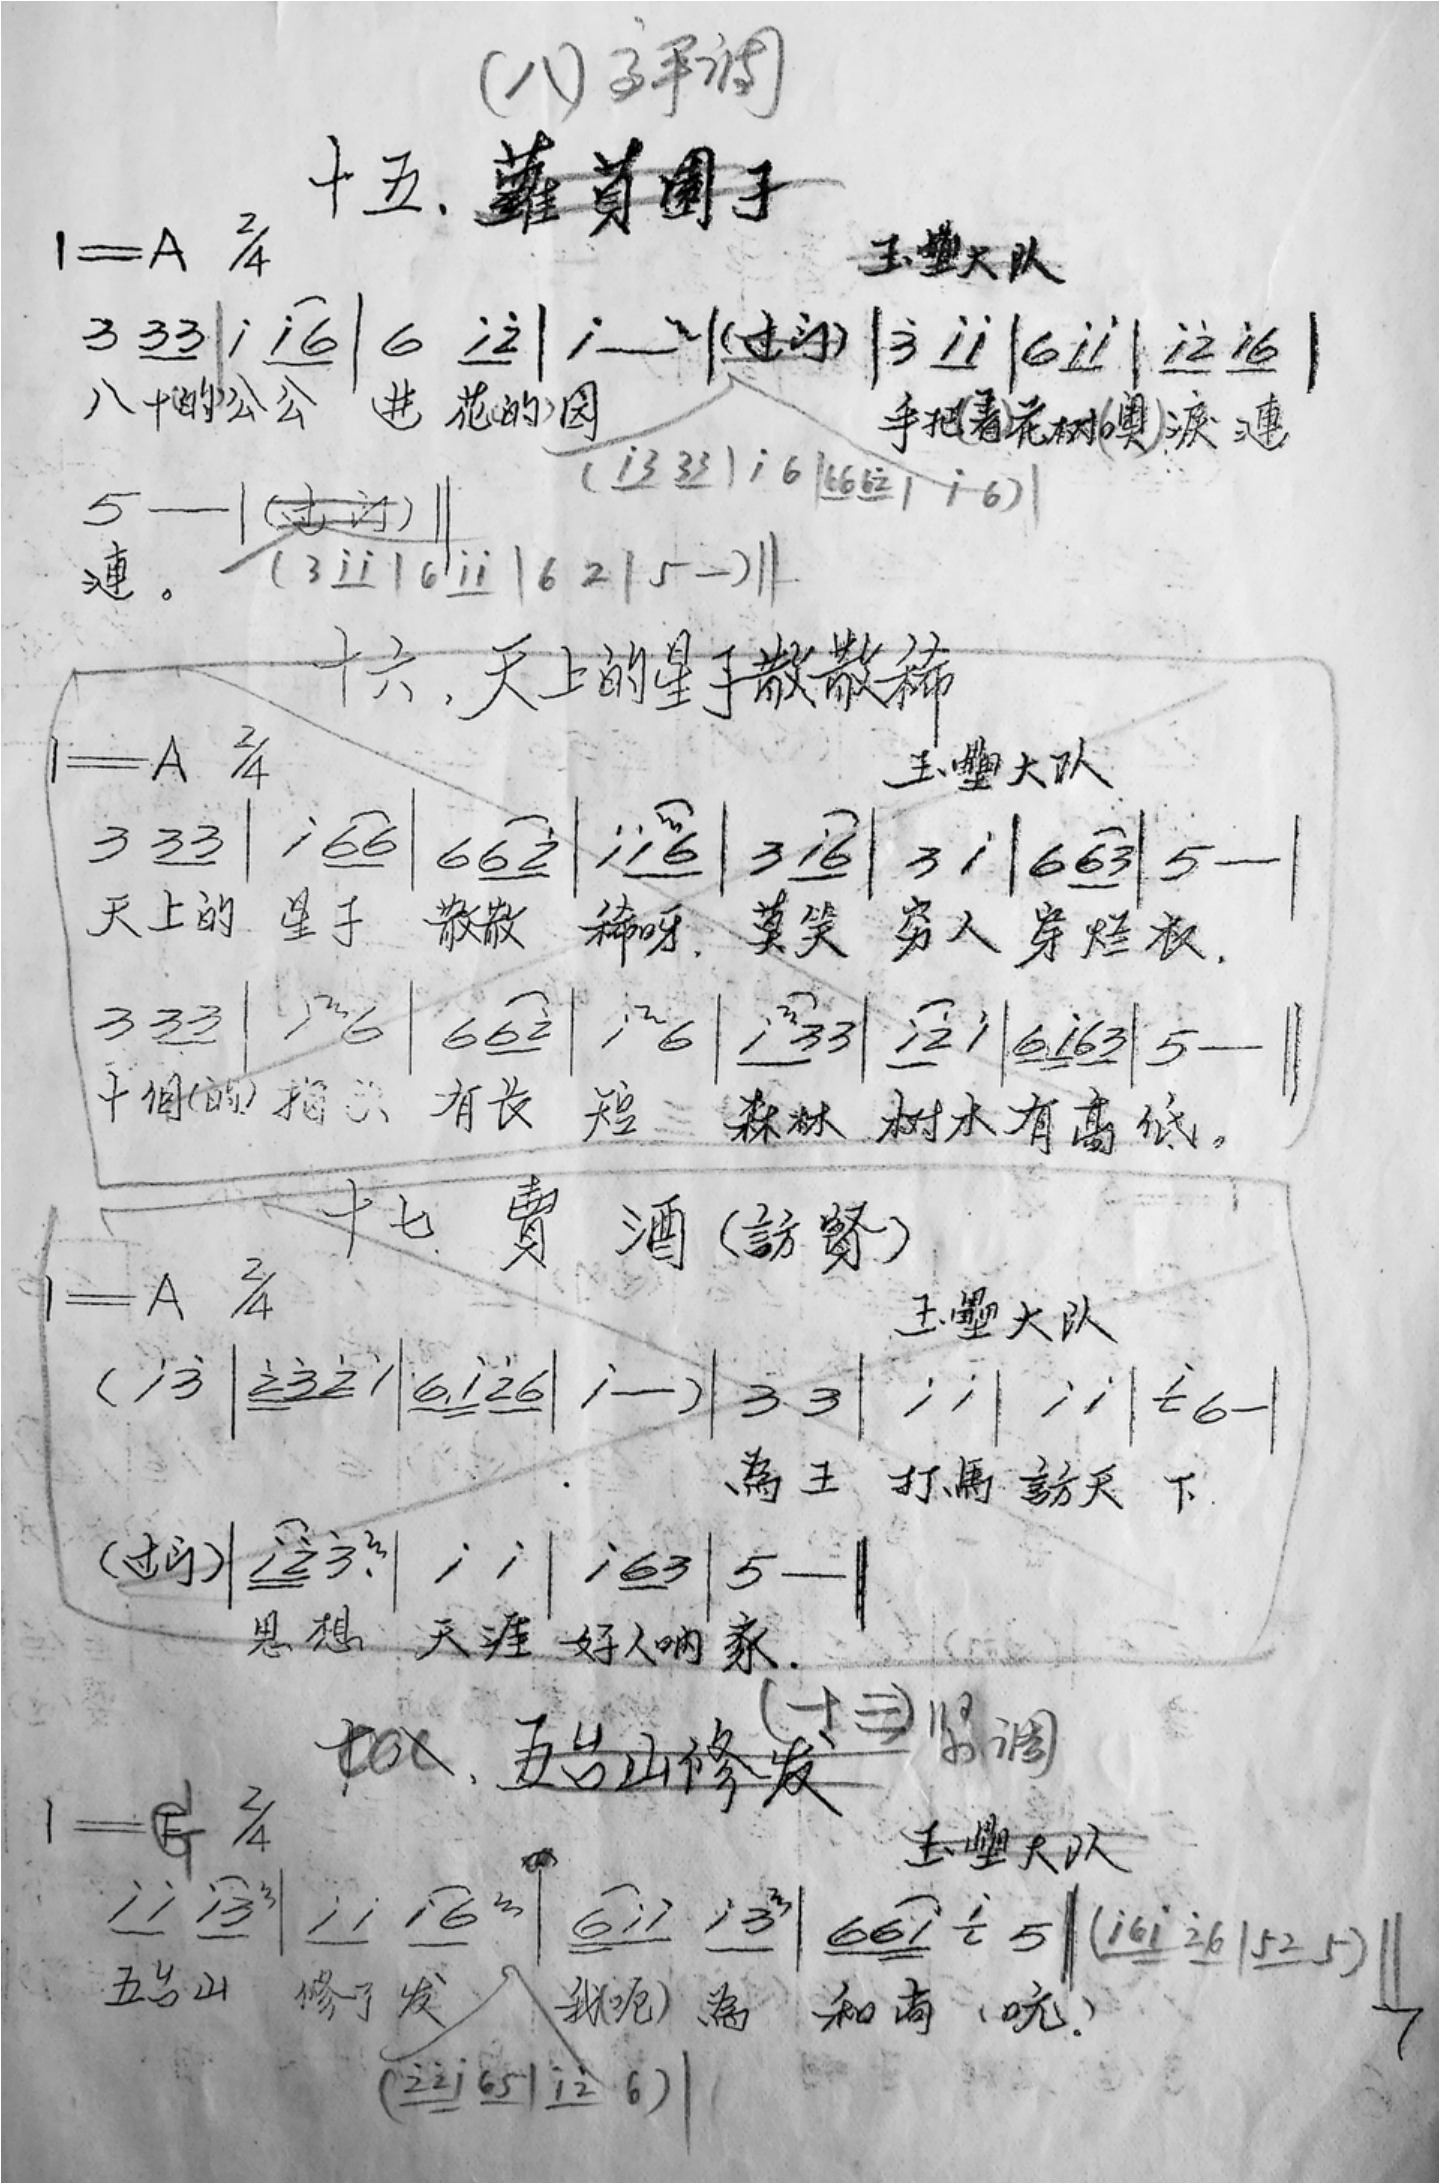 (八)平调
十五、蘿茛園子
1=A 2/4
玉壘大队
3 33|i i6|6 i2̇|i —|(过门)|3 ii|6 ii|i2̇ i6|
八十(的)公公 进 花(的)园 手把(着)花树(噢)淚漣
(i3 33|i 6|66 62̇|i 6)|
5 —|(过门)‖
(3 ii|6 ii|6 2|5 —)‖
漣。
十六、天上的星子散散稀
1=A 2/4
玉壘大队
3 33|i 66|6 62̇|i i6|3 i6|3 i|6 63|5 —|
天上的 星子 散散 稀呀. 莫笑 穷人 穿烂衣.
3 33|i 6|6 62̇|i 6|i3 3|i2̇ i|6.i 63|5 —‖
十個(的) 指 有长 短 森林 树木 有高低。
十七 賣 酒(訪賢)
1=A 2/4
玉壘大队
(i 3̇|2̇3̇2̇ i|6.i 2̇6|i —)|3 3|i i|i i|i 6 —|
為王 打馬 訪天 下
(过门)|i2̇ 3̇|i i|i 63|5 —‖
思想 天涯 好人吶家.
(十三)調
十八、五台山修发
1=G 2/4
玉壘大队
ii i3̇|ii i6|6ii i3̇|66i i 5‖(i6i 2̇6|52 5)‖
五台山 修了发 我(呃)為 和尚(咣.)
(2̇2̇i 65|i2̇ 6)|
7